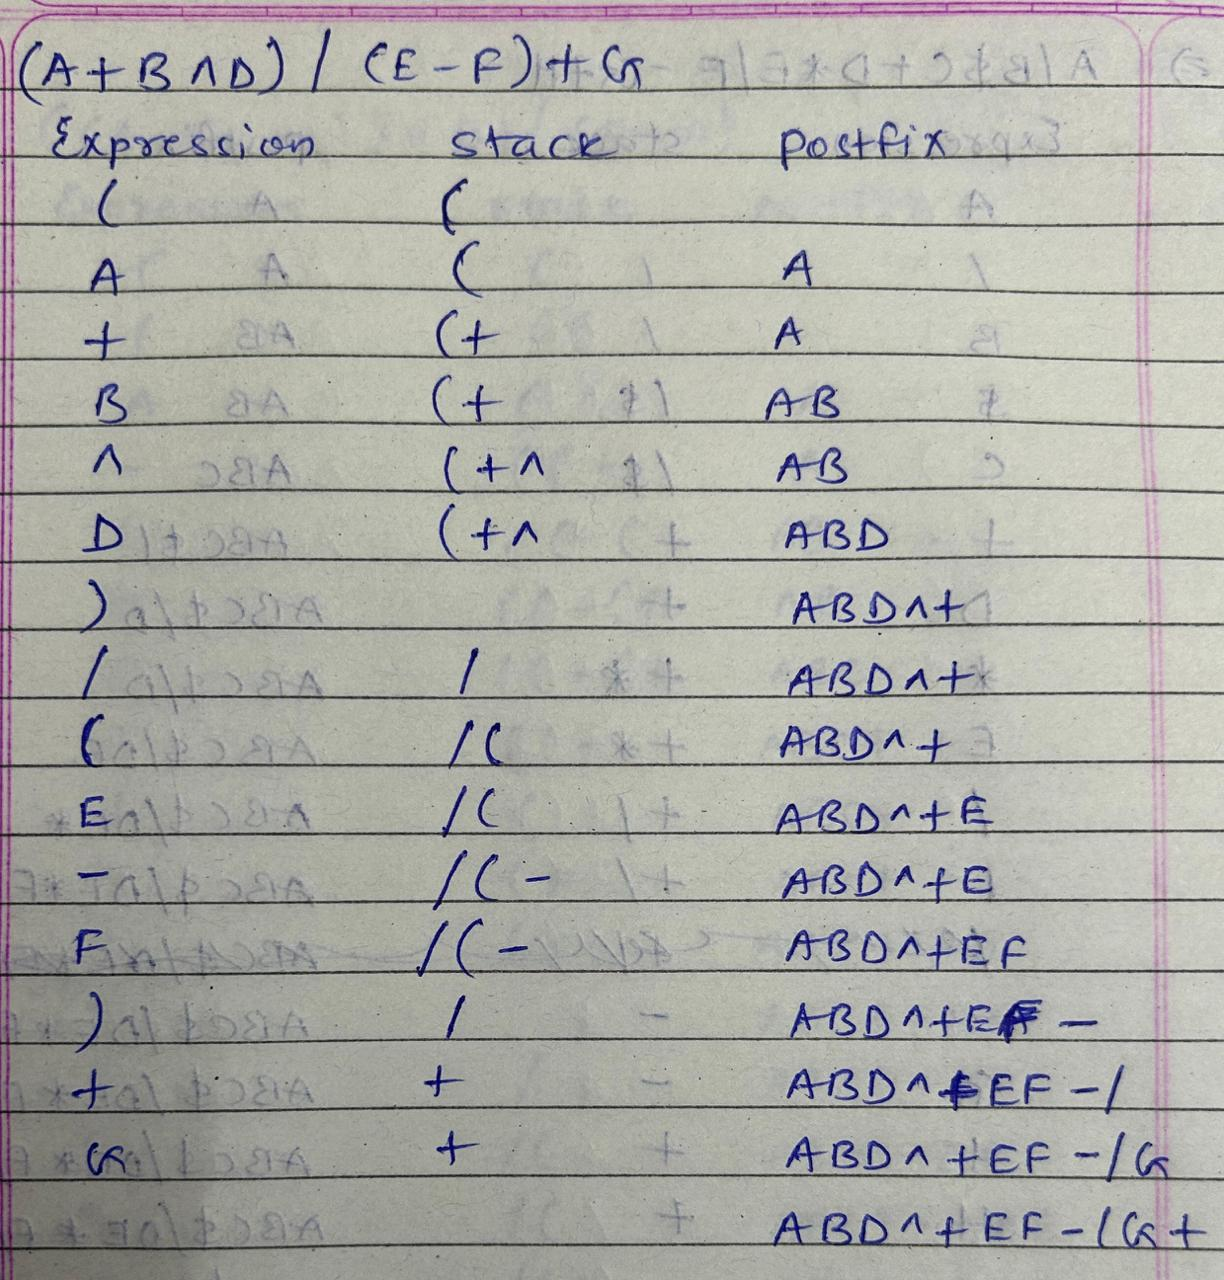 (A+B^D) / (E-F)+G
Expression stack postfix
( (
A ( A
+ (+ A
B (+ AB
^ (+^ AB
D (+^ ABD
) ABD^+
/ / ABD^+
( /( ABD^+
E /( ABD^+E
- /(- ABD^+E
F /(- ABD^+EF
) / ABD^+EF-
+ + ABD^+EF-/
G + ABD^+EF-/G
ABD^+EF-/G+